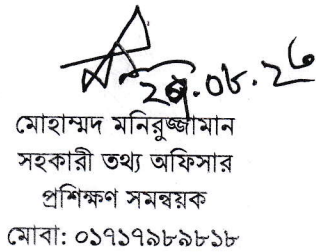 মোহাম্মদ মনিরুজ্জামান
সহকারী তথ্য অফিসার
প্রশিক্ষণ সমন্বয়ক
মোবা: ০১৭১৭৯৮৯৮১৮